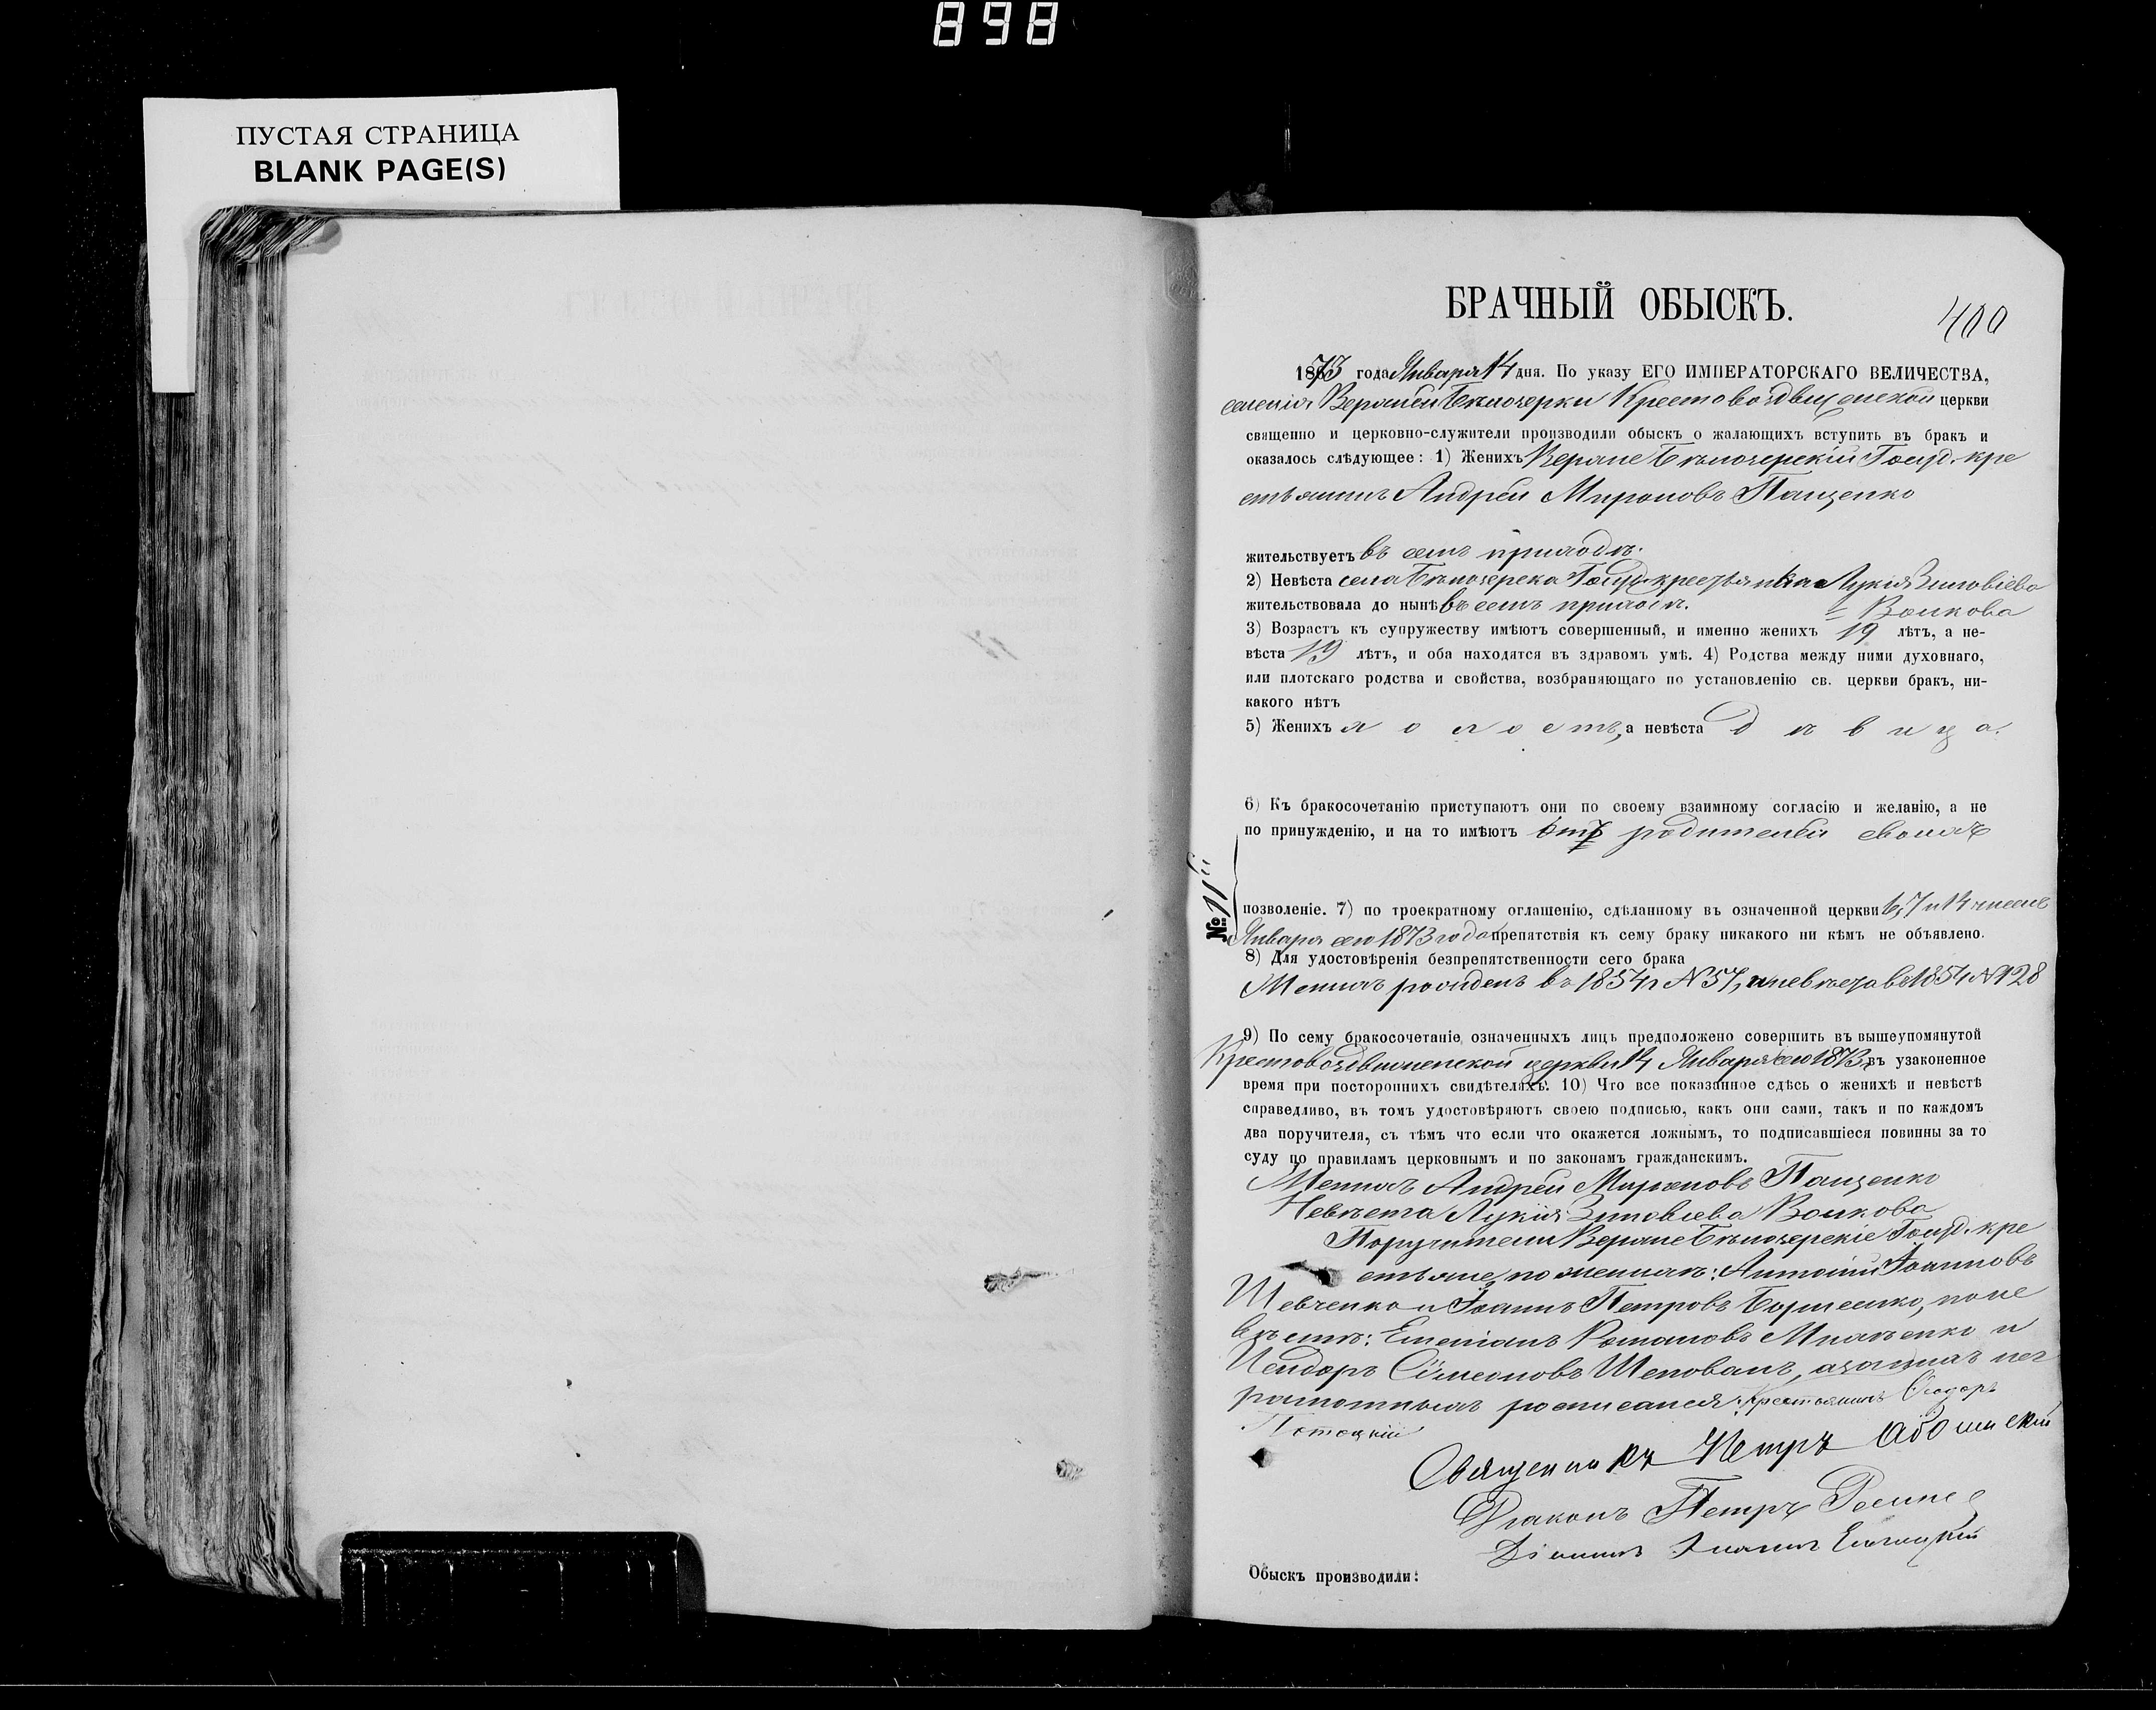 898
ПУСТАЯ СТРАНИЦА
BLANK PAGE(S)
БРАЧНЫЙ ОБЫСКЪ.
400
1873 года Января 14 дня. По указу ЕГО ИМПЕРАТОРСКАГО ВЕЛИЧЕСТВА,
селенія Верхней Бѣлозерки Крестовоздвиженской церкви
священно и церковно-служители производили обыскъ о жалающихъ вступить въ бракъ и
оказалось слѣдующее: 1) Женихъ Верхне Бѣлозерскій Госуд. кре
стьянинъ Андрей Мироновъ Пащенко
жительствуетъ въ семъ приходѣ.
2) Невѣста села Бѣлозерска Госуд. крестьянка Лукія Зиновіева
жительствовала до нынѣ въ семъ приходѣ. = Волкова
3) Возрастъ къ супружеству имѣютъ совершенный, и именно женихъ 19 лѣтъ, а не-
вѣста 19 лѣтъ, и оба находятся въ здравомъ умѣ. 4) Родства между ними духовнаго,
или плотскаго родства и свойства, возбраняющаго по установленію св. церкви бракъ, ни-
какого нѣтъ
5) Женихъ холостъ, а невѣста дѣвица.
6) Къ бракосочетанію приступаютъ они по своему взаимному согласію и желанію, а не
по принужденію, и на то имѣютъ отъ родителей своихъ
№ 11й
позволеніе. 7) по троекратному оглашенію, сдѣланному въ означенной церкви 6, 7 и 14 чиселъ
Января сего 1873 года препятствія къ сему браку никакого ни кѣмъ не объявлено.
8) Для удостовѣренія безпрепятственности сего брака
Женихъ рожденъ въ 1854 г N 57, и невѣста въ 1854 N 128
9) По сему бракосочетаніе означенныхъ лицъ предположено совершить въ вышеупомянутой
Крестовоздвиженской церкви 14 Января сего 1873 г въ узаконенное
время при постороннихъ свидѣтеляхъ. 10) Что все показанное сдѣсь о женихѣ и невѣстѣ
справедливо, въ томъ удостовѣряютъ своею подписью, какъ они сами, такъ и по каждомъ
два поручителя, съ тѣмъ что если что окажется ложнымъ, то подписавшіеся повинны за то
суду по правиламъ церковнымъ и по законамъ гражданскимъ.
Женихъ Андрей Мироновъ Пащенко
Невѣста Лукія Зиновіева Волкова
Поручители Верхне Бѣлозерскіе Госуд. кре
стьяне, по женихѣ: Антоній Іоанновъ
Шевченко и Іоаннъ Петровъ, по не
вѣстѣ: Емеліанъ Романовъ и
Исидоръ Сѵмеоновъ Шеповалъ, а за нихъ нег
рамотныхъ росписался Крестьянинъ Ѳеодоръ
Потоцкій
Священникъ Петръ
Діаконъ Петръ
Обыскъ производили: